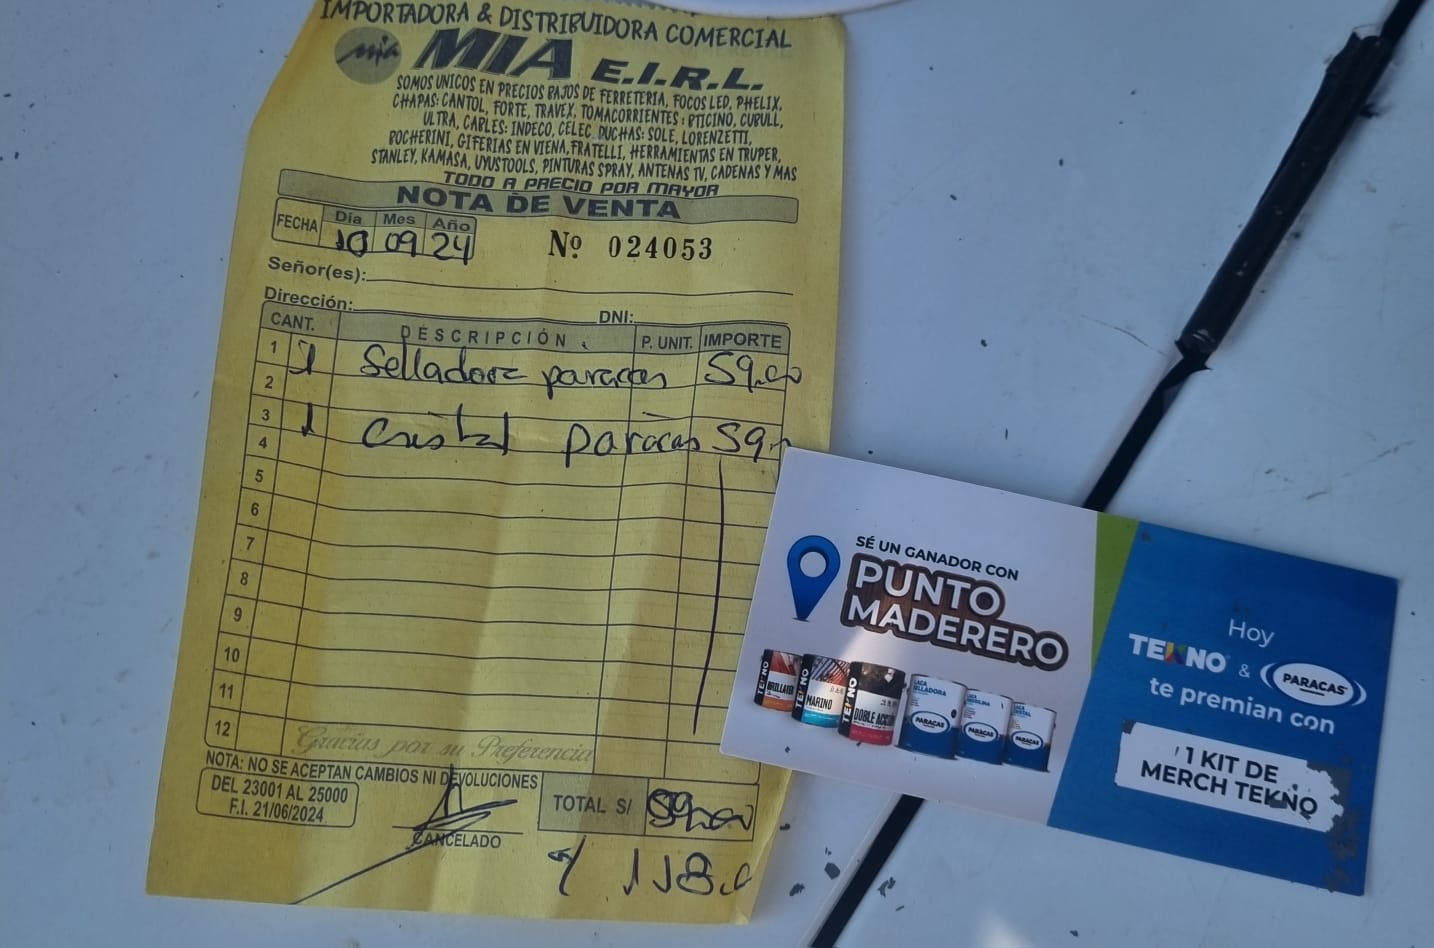 IMPORTADORA & DISTRIBUIDORA COMERCIAL
mia MIA E.I.R.L.
SOMOS UNICOS EN PRECIOS BAJOS DE FERRETERIA, FOCOS LED, PHELIX,
CHAPAS: CANTOL, FORTE, TRAVEX, TOMACORRIENTES : BTICINO, CUPULL,
ULTRA, CABLES: INDECO, CELEC, DUCHAS: SOLE, LORENZETTI,
ROCHERINI, GIFERIAS EN VIENA, FRATELLI, HERRAMIENTAS EN TRUPER,
STANLEY, KAMASA, UYUSTOOLS, PINTURAS SPRAY, ANTENAS TV, CADENAS Y MAS
TODO A PRECIO POR MAYOR
NOTA DE VENTA
FECHA Día Mes Año
10 09 24
Nº 024053
Señor(es):
Dirección: DNI:
CANT. DESCRIPCIÓN P. UNIT. IMPORTE
1 1 Selladora paracas 59.00
2
3 1 Cristal paracas 59
4
5
6
7
8
9
10
11
12
Gracias por su Preferencia
NOTA: NO SE ACEPTAN CAMBIOS NI DEVOLUCIONES
DEL 23001 AL 25000
F.I. 21/06/2024
CANCELADO
TOTAL S/ 59.00
118.0
SÉ UN GANADOR CON
PUNTO
MADERERO
TEKNO BRILLATEK
TEKNO MARINO
TEKNO DOBLE ACCIÓN
LACA SELLADORA PARACAS
PARACAS
PARACAS
Hoy
TEKNO & PARACAS
te premian con
1 KIT DE
MERCH TEKNO